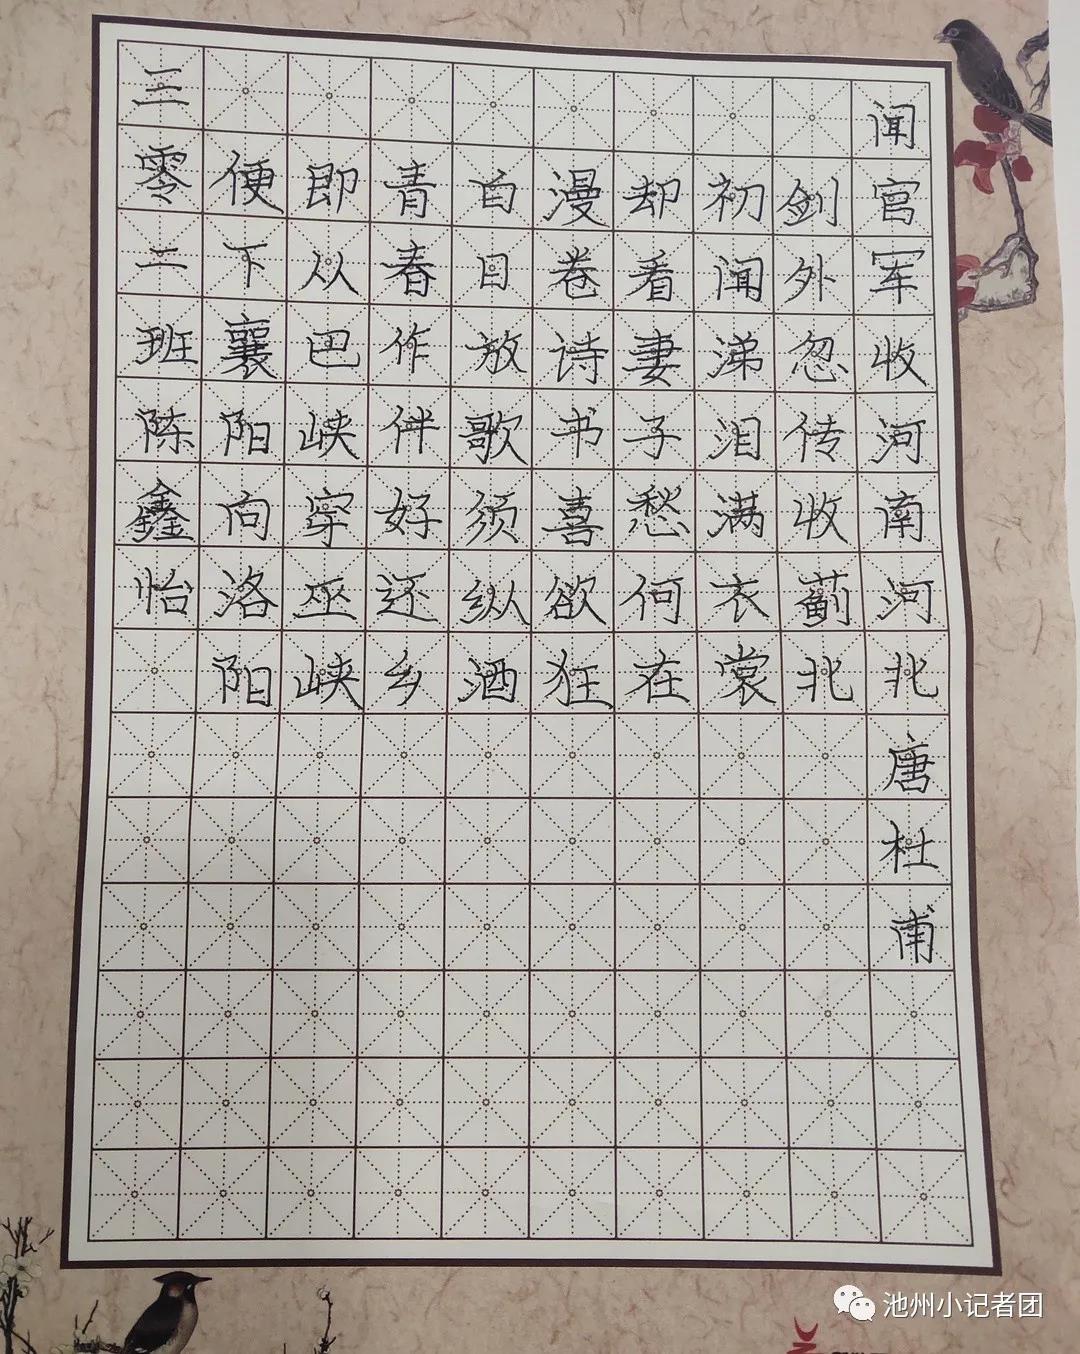 闻官军收河南河北唐杜甫
剑外忽传收蓟北
初闻涕泪满衣裳
却看妻子愁何在
漫卷诗书喜欲狂
白日放歌须纵酒
青春作伴好还乡
即从巴峡穿巫峡
便下襄阳向洛阳
三零二班陈鑫怡
池州小记者团